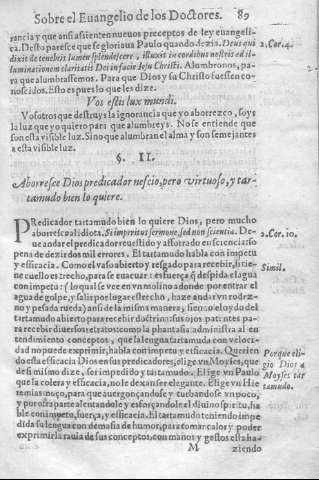 Sobre el Euangelio de los Doctores. 89
rancia y que ansi assienten nueuos preceptos de ley euangeli-
ca. Desto paresce que se gloriaua Paulo quando dezia. Deus qui
dixit de tenebris lumen splendescere, illuxit in cordibus nostris ad il-
luminationem claritatis Dei in facie Iesu Christi. Alumbronos, pa-
ra que alumbrassemos. Para que Dios y su Christo fuessen co-
noscidos. Esto es pues lo que les dize.
2. Cor. 4.
Vos estis lux mundi.
Vosotros que destruys la ignorancia que yo aborrezco, soys
la luz que yo quiero para que alumbreys. No se entiende que
son esta visible luz. Sino que alumbran el alma y son semejantes
a esta visible luz.
§. II.
Aborresce Dios predicador nescio, pero virtuoso, y tar-
tamudo bien lo quiere.
PRedicador tartamudo bien lo quiere Dios, pero mucho
aborresce al idiota. Si imperitus sermone, sed non scientia. De
ue andar el predicador vestido y assorrado en sciencia so
pena de dezir dos mil errores. El tartamudo habla con impetu
y efficacia. Como el vaso abierto y resgado para recebir, si tie-
ne cuello estrecho, para se euacuar: es fuerça q̃ despida el agua
con impetu: (lo qual se vee en vn molino adonde por entrar el
agua de golpe, y salir por lugar estrecho, haze andar vn rodez-
no y pesada rueda) ansi de la misma manera, siendo el oydo del
tartamudo abierto para recebir doctrina: sus ojos patentes pa-
ra recebir diuersos retratos: como la phantasia administra al en
tendimiento conceptos, que la lengua tartamuda con veloci-
dad no puede exprimir, habla con impetu y efficacia. Querien
do esta efficacia Dios en sus predicadores, elige vn Moyses, que
de si mismo dize, ser impedido y tartamudo. Elige vn Paulo
que la colera y efficacia, no le dexan ser elegante. Elige vn Hie
remias moço, para que auergonçandose y turbandose vn poco,
y por otra parte alentandole y esforçandole el diuino spiritu, ha
ble con impetu, fuerça, y efficacia. El tartamudo teniendo impe
dida su lengua con demasia de humor, para tomar calor y poder
exprimir la raula de sus conceptos, con manos y gestos esta ha-
2. Cor. 10.
Simil.
Porque eli-
gio Dios a
Moyses tar
tamudo.
M ziendo